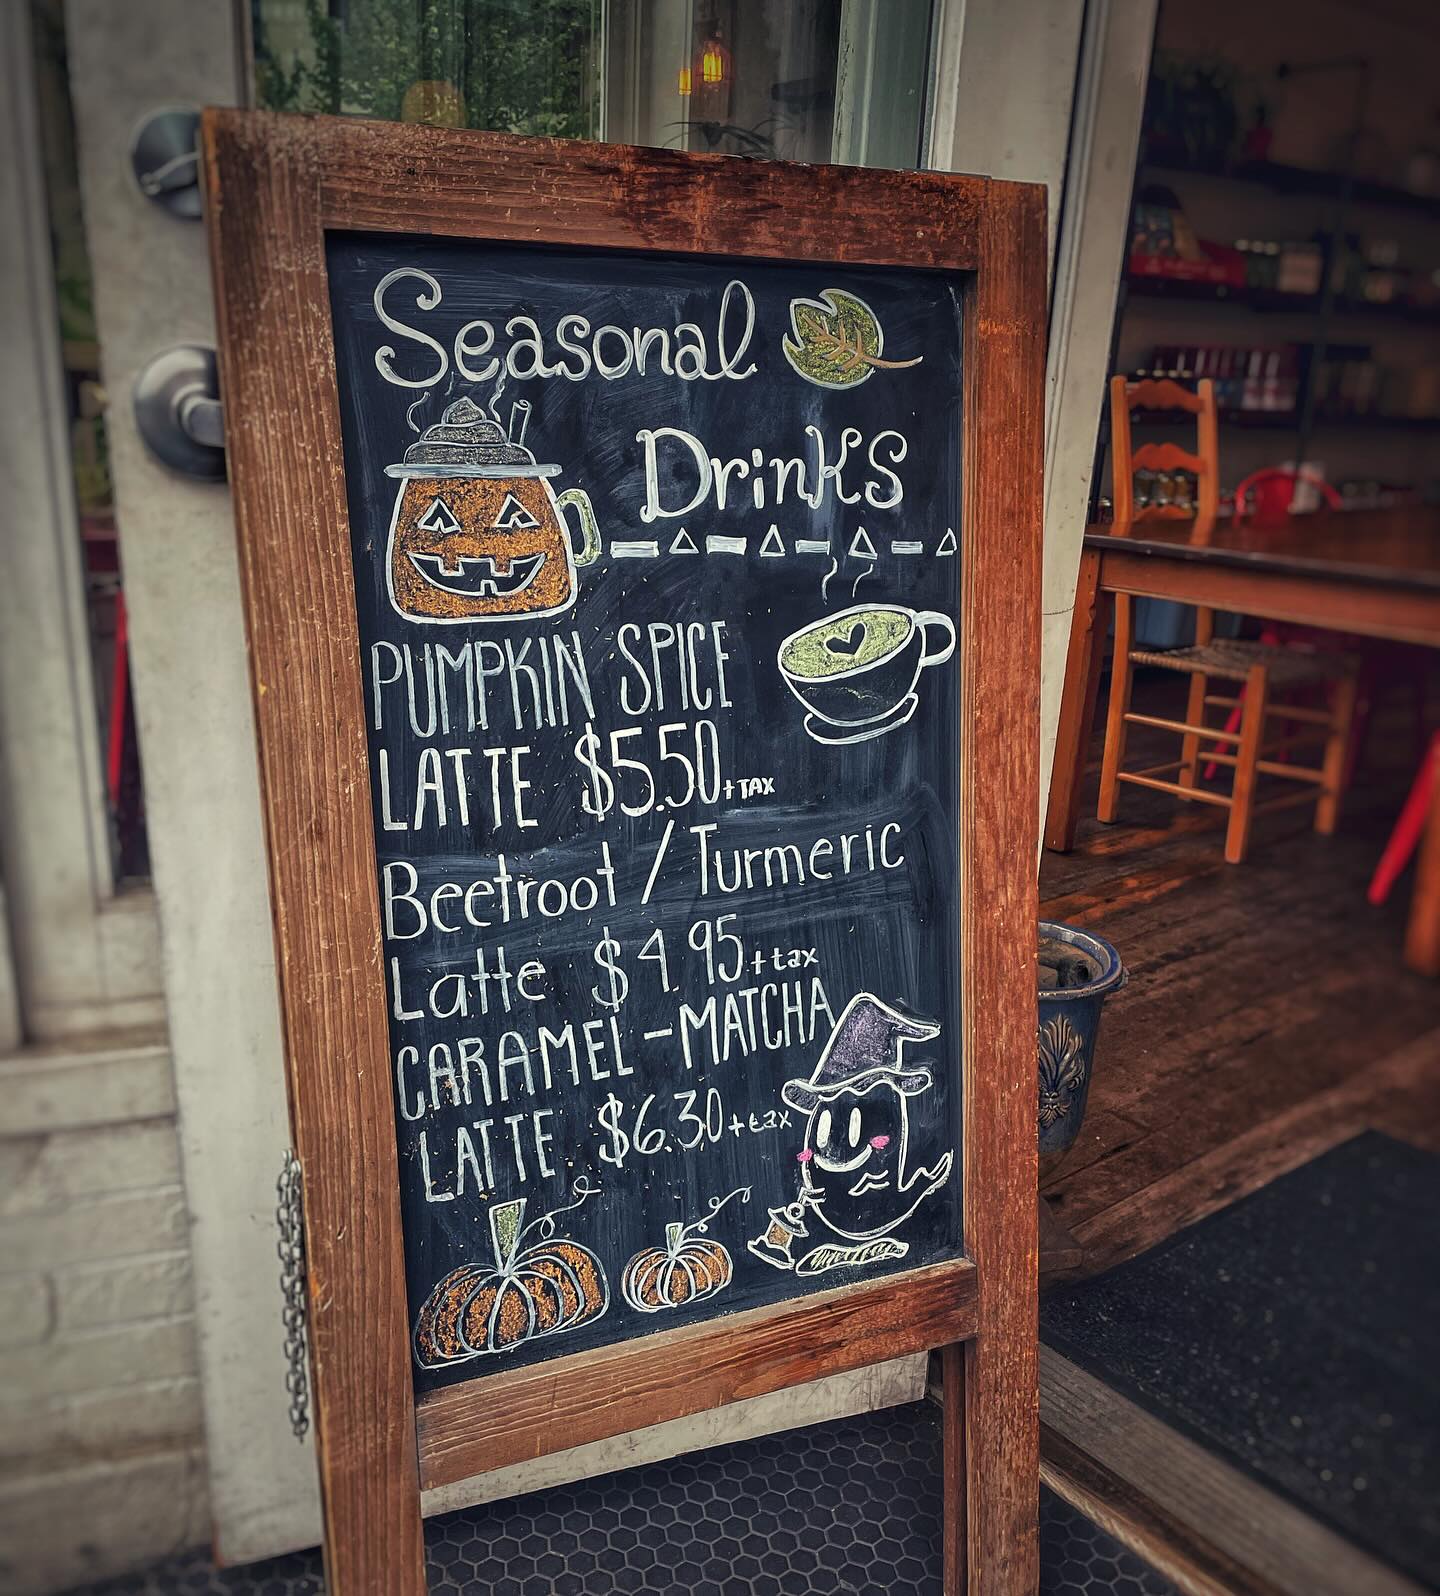 Seasonal
DrinKS
PUMPKIN SPICE
LATTE $5.50+TAX
Beetroot / Turmeric
Latte $4.95+tax
CARAMEL-MATCHA
LATTE $6.30+tax